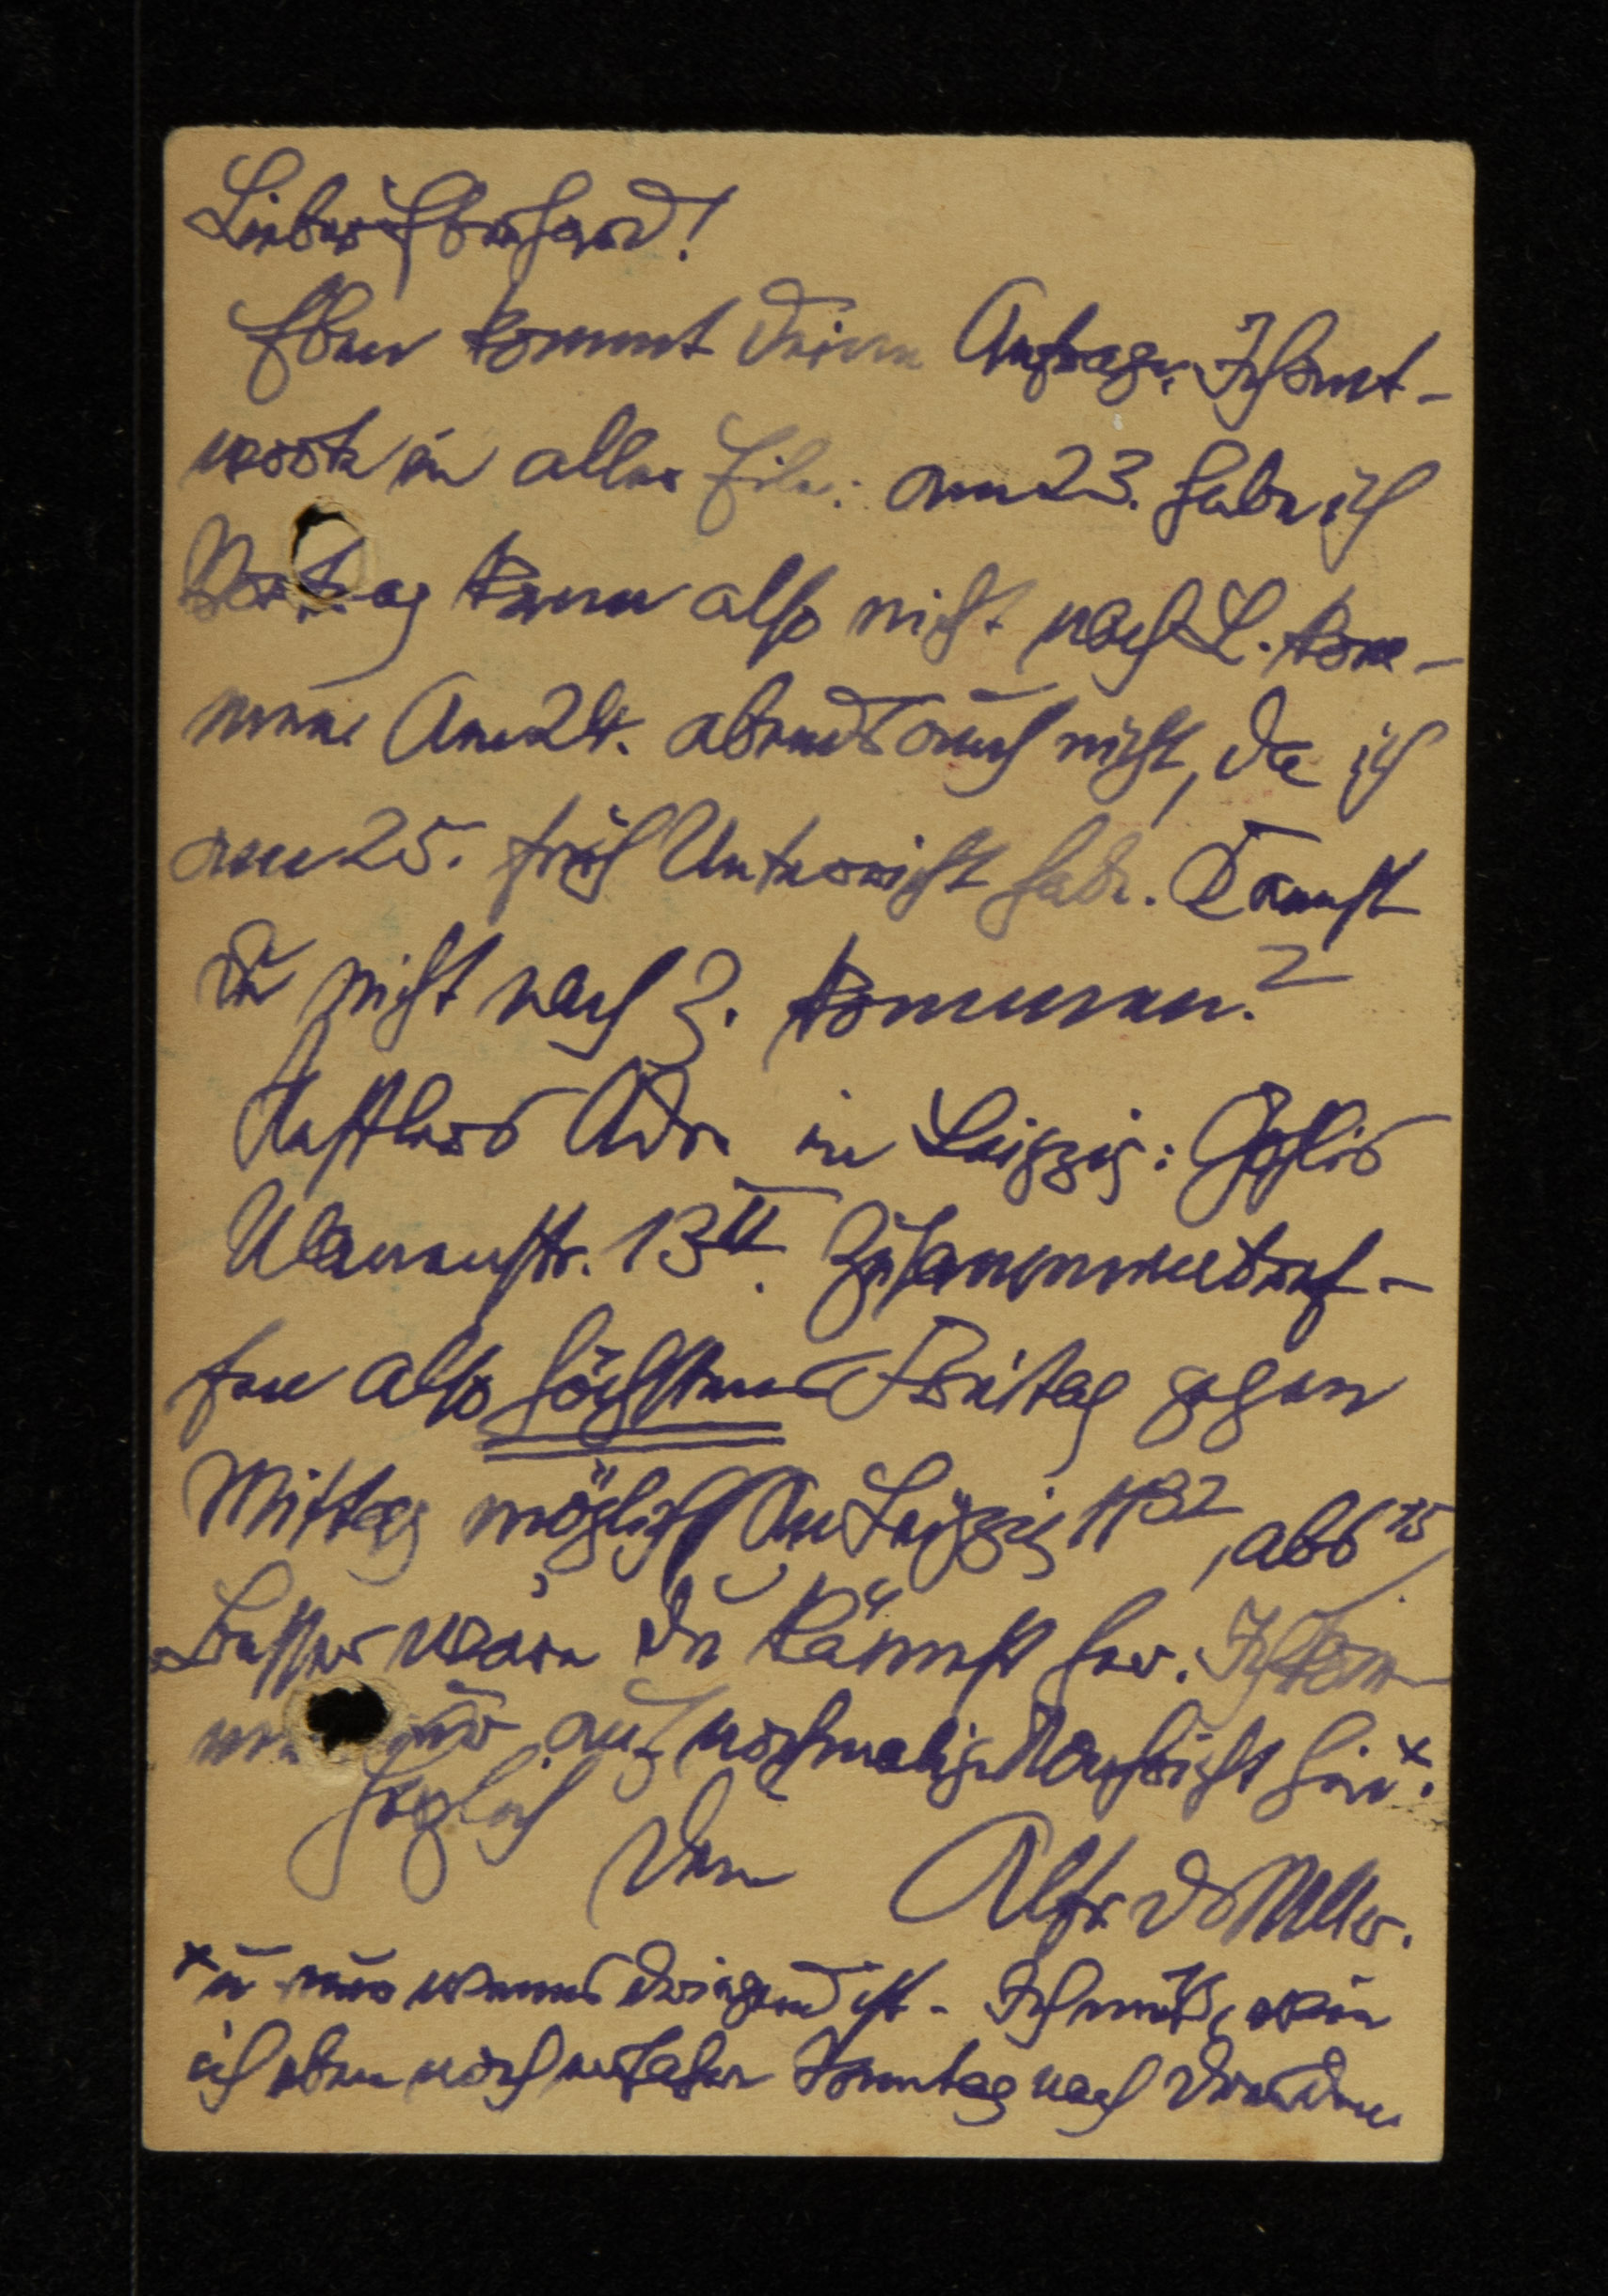 Lieber Eberhard!
Eben kommt deine Anfrage. Ich ant-
worte in aller Eile: am 23. habe ich
Vortrag kann also nicht nach L. kom-
men. Am 24. abends auch nicht, da ich
am 25. früh Unterricht habe. Kannst
du nicht nach Z. kommen?
Adr. in Leipzig: Gohlis
13 II. Zusammentref-
fen also höchstens Freitag gegen
Mittag möglich An Leipzig 11 32, ab
Besser wäre du kämest her. Ich kom-
me nur auf nochmalige Nachricht hin x.
Herzlich
Dein Alfr
x u nur wenns dringend ist. Ich muß, wie
ich eben noch erfahre Sonntag nach Dresden